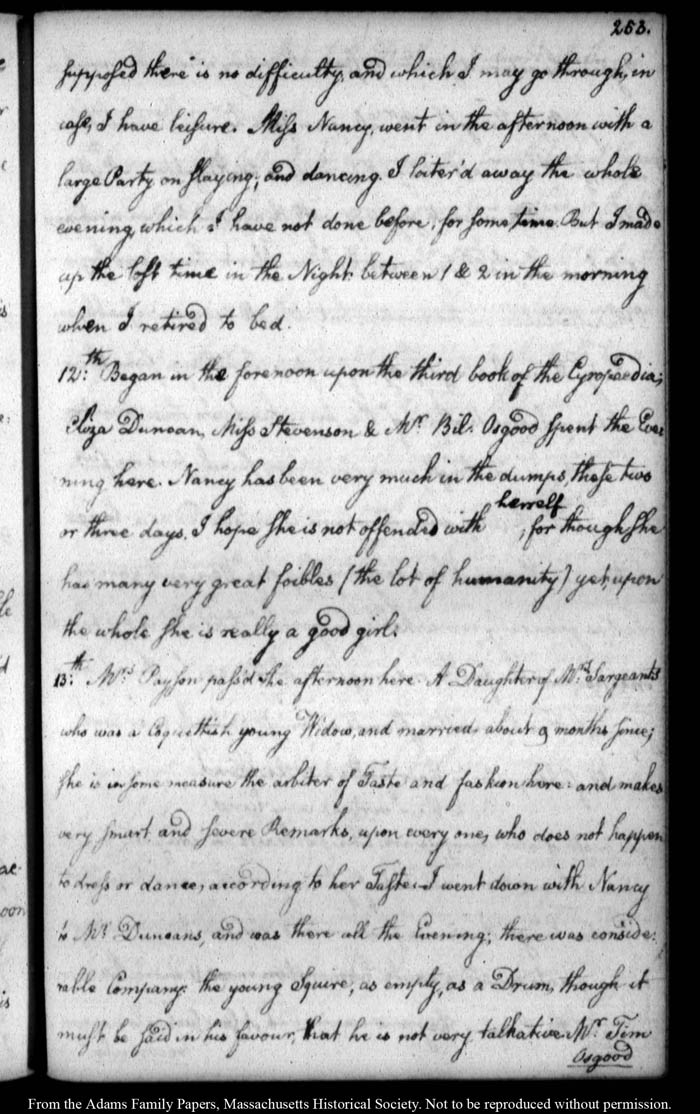 253.
supposed there is no difficulty, and which I may go through, in
case, I have leisure. Miss Nancy, went in the afternoon with a
large Party on slaying, and dancing. I loiter'd away the whole
evening, which I have not done before, for some time. But I made
up the lost time in the Night between 1 & 2 in the morning
when I retired to bed.
12:th Began in the forenoon upon the third book of the Cyropædia;
Eliza Duncan, Miss Stevenson & Mr. Bil. Osgood spent the Eve-
ning here. Nancy has been very much in the dumps, these two
herself
or three days, I hope she is not offended with , for though she
has many very great foibles (the lot of humanity) yet, upon
the whole she is really a good girl.
13:th Mrs. Payson pass'd the afternoon here. A Daughter of Mrs. Sargeants
who was a Coquettish young Widow, and married about 9 months since;
she is in some measure the arbiter of Taste and fashion here: and makes
very smart and severe Remarks, upon every one, who does not happen
to dress or dance, according to her Taste. I went down with Nancy
to Mr. Duncans, and was there all the Evening; there was conside:
rable Company: the young Squire, as empty, as a Drum, though it
must be said in his favour, that he is not very talkative. Mr. Tim
Osgood
From the Adams Family Papers, Massachusetts Historical Society. Not to be reproduced without permission.